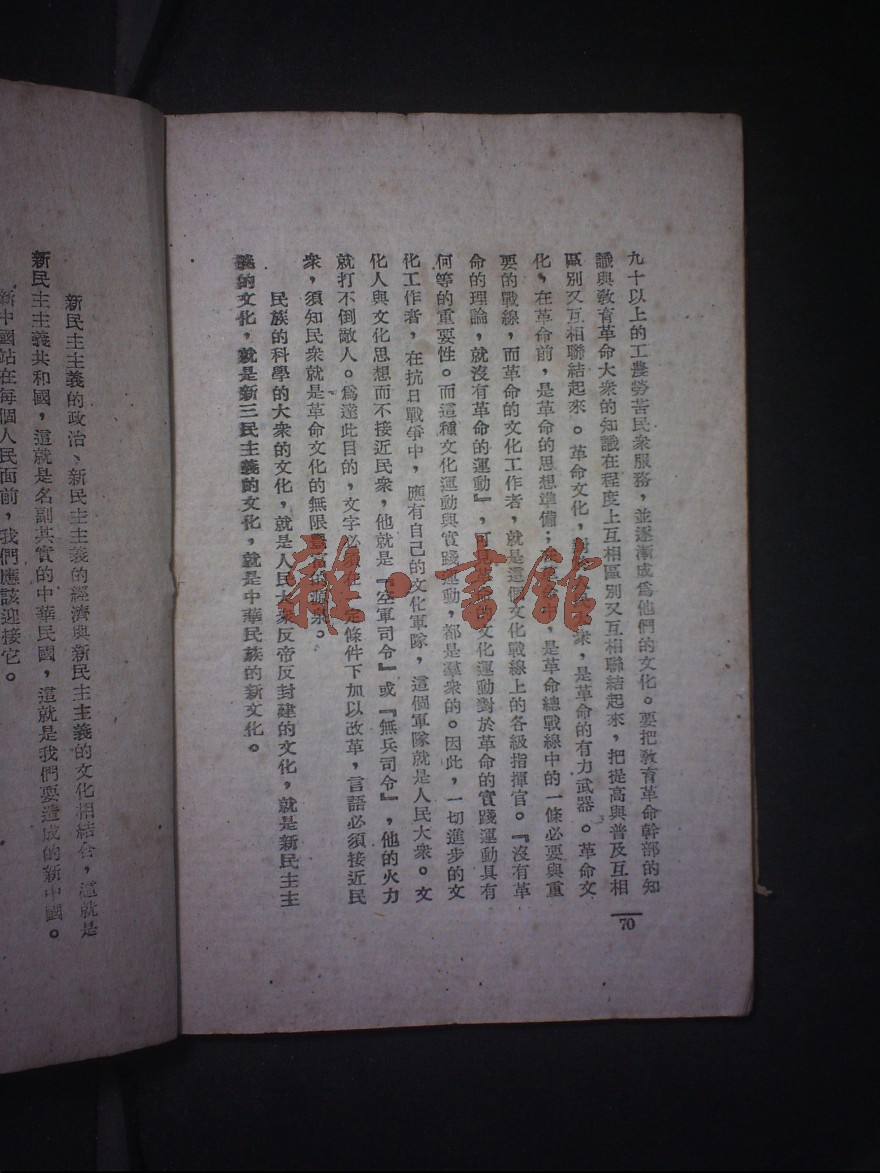 九十以上的工農勞苦民衆服務，並逐漸成爲他們的文化。要把敎育革命幹部的知
識與敎育革命大衆的知識在程度上互相區別又互相聯結起來，把提高與普及互相
區別又互相聯結起來。革命文化，衆，是革命的有力武器。革命文
化，在革命前，是革命的思想準備；中，是革命總戰線中的一條必要與重
要的戰線，而革命的文化工作者，就是這個文化戰線上的各級指揮官。『沒有革
命的理論，就沒有革命的運動』，可見文化運動對於革命的實踐運動具有
何等的重要性。而這種文化運動與實踐運動，都是羣衆的。因此，一切進步的文
化工作者，在抗日戰爭中，應有自己的文化軍隊，這個軍隊就是人民大衆。文
化人與文化思想而不接近民衆，他就是『空軍司令』或『無兵司令』，他的火力
就打不倒敵人。爲達此目的，文字必條件下加以改革，言語必須接近民
衆，須知民衆就是革命文化的無限源泉。
民族的科學的大衆的文化，就是人民大衆反帝反封建的文化，就是新民主主
義的文化，就是新三民主義的文化，就是中華民族的新文化。
70
雜·書館
新民主主義的政治、新民主主義的經濟與新民主主義的文化相結合，這就是
新民主主義共和國，這就是名副其實的中華民國，這就是我們要造成的新中國。
新中國站在每個人民面前，我們應該迎接它。